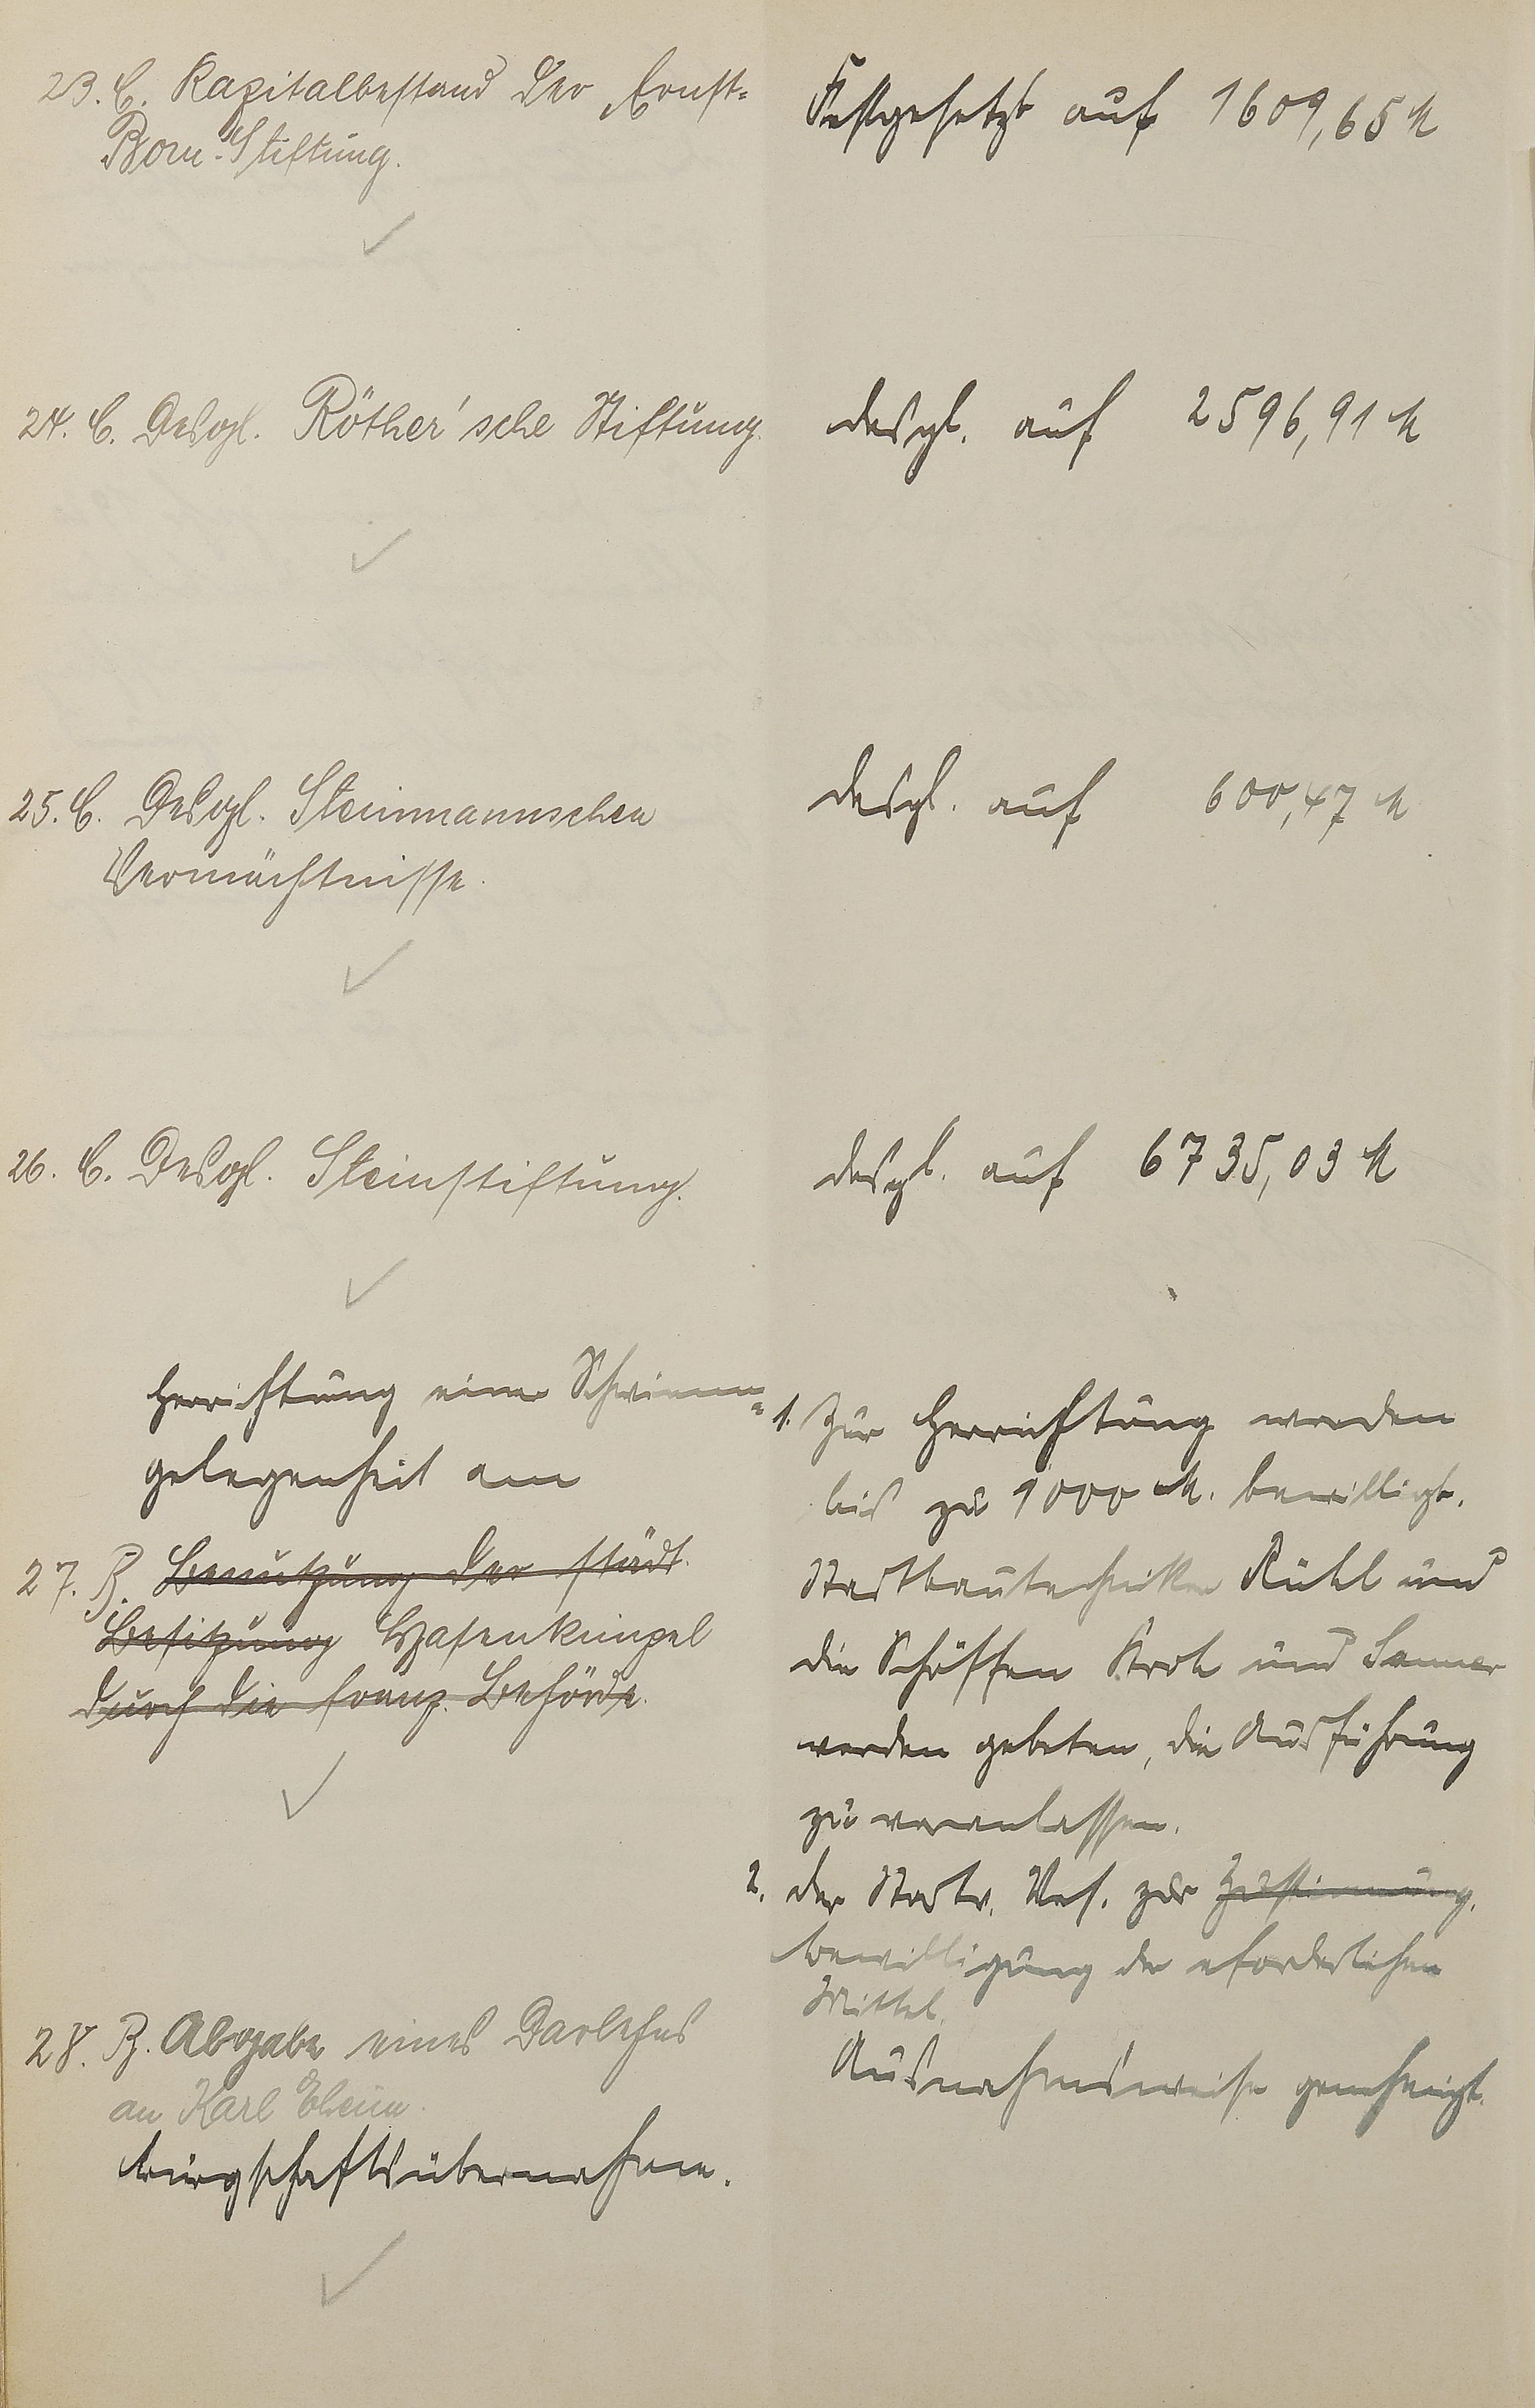 23. C. Kapitalbestand der Ernst-
Born-Stiftung.
Festgesetzt auf 1609,65 M
24. C. Desgl. Röther'sche Stiftung.
desgl. auf 2596,91 M
25. C. Desgl. Steinmannschen
Vermächtnisse.
desgl. auf 600,47 M
26. C. Desgl. Steinstiftung.
desgl. auf 6735,03 M
Herrichtung einer Schwimm-
gelegenheit am
27. B. Benutzung der städt.
Besitzung Hasenkümpel
durch die franz. Behörde.
1. Zur Herrichtung werden
bis zu 1000 M. bewilligt.
Stadtbautechniker Rühl und
die Schöffen Kroh und
werden gebeten, die Ausführung
zu veranlassen.
2. der Stadtv. Vers. zur Zustimmung.
bewilligung der erforderlichen
Mittel.
28. B. Abgabe eines Darlehns
an Karl
bürgschaftsübernahme.
Ausnahmsweise genehmigt.